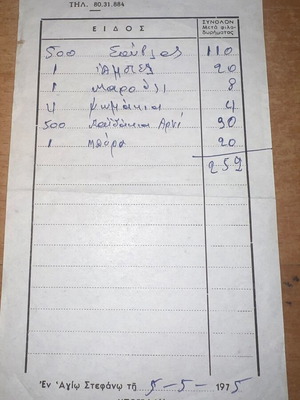 ΤΗΛ. 80.31.884
ΕΙΔΟΣ ΣΥΝΟΛΟΝ
Μετὰ φιλοδωρήματος
500 Σούβλας 110
1 20
1 Μαρούλι 8
4 ψωμάκια 4
500 Παϊδάκια Αρνί 90
1 μπύρα 20
252
Ἐν Ἁγίῳ Στεφάνῳ τῇ 5-5-1975